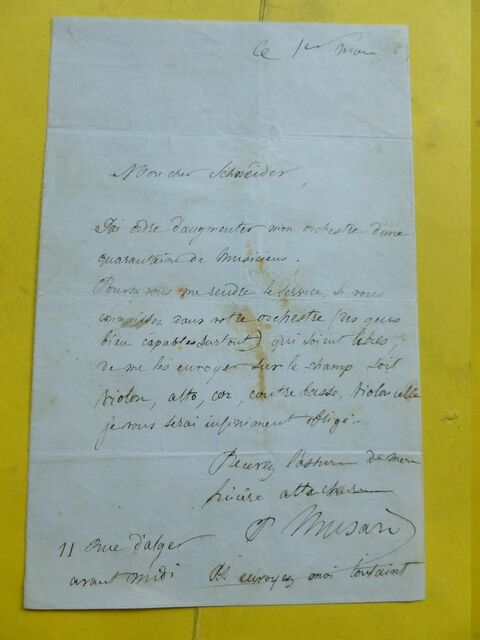 Le 1er Mars
Mon cher Schneider,
J'ai ordre d'augmenter mon orchestre d'une
quarantaine de Musiciens.
Pouvez vous me rendre le service, si vous
connaissez dans votre orchestre (des gens
bien capables surtout) qui soient libres,
de me les envoyer sur le champ soit
violon, alto, cor, contre basse, violoncelle
je vous serai infiniment obligé.
Recevez l'assurance de mon
sincère attachement
P Musard
11 Rue d'alger
avant midi
Ps. envoyez moi Toutaint